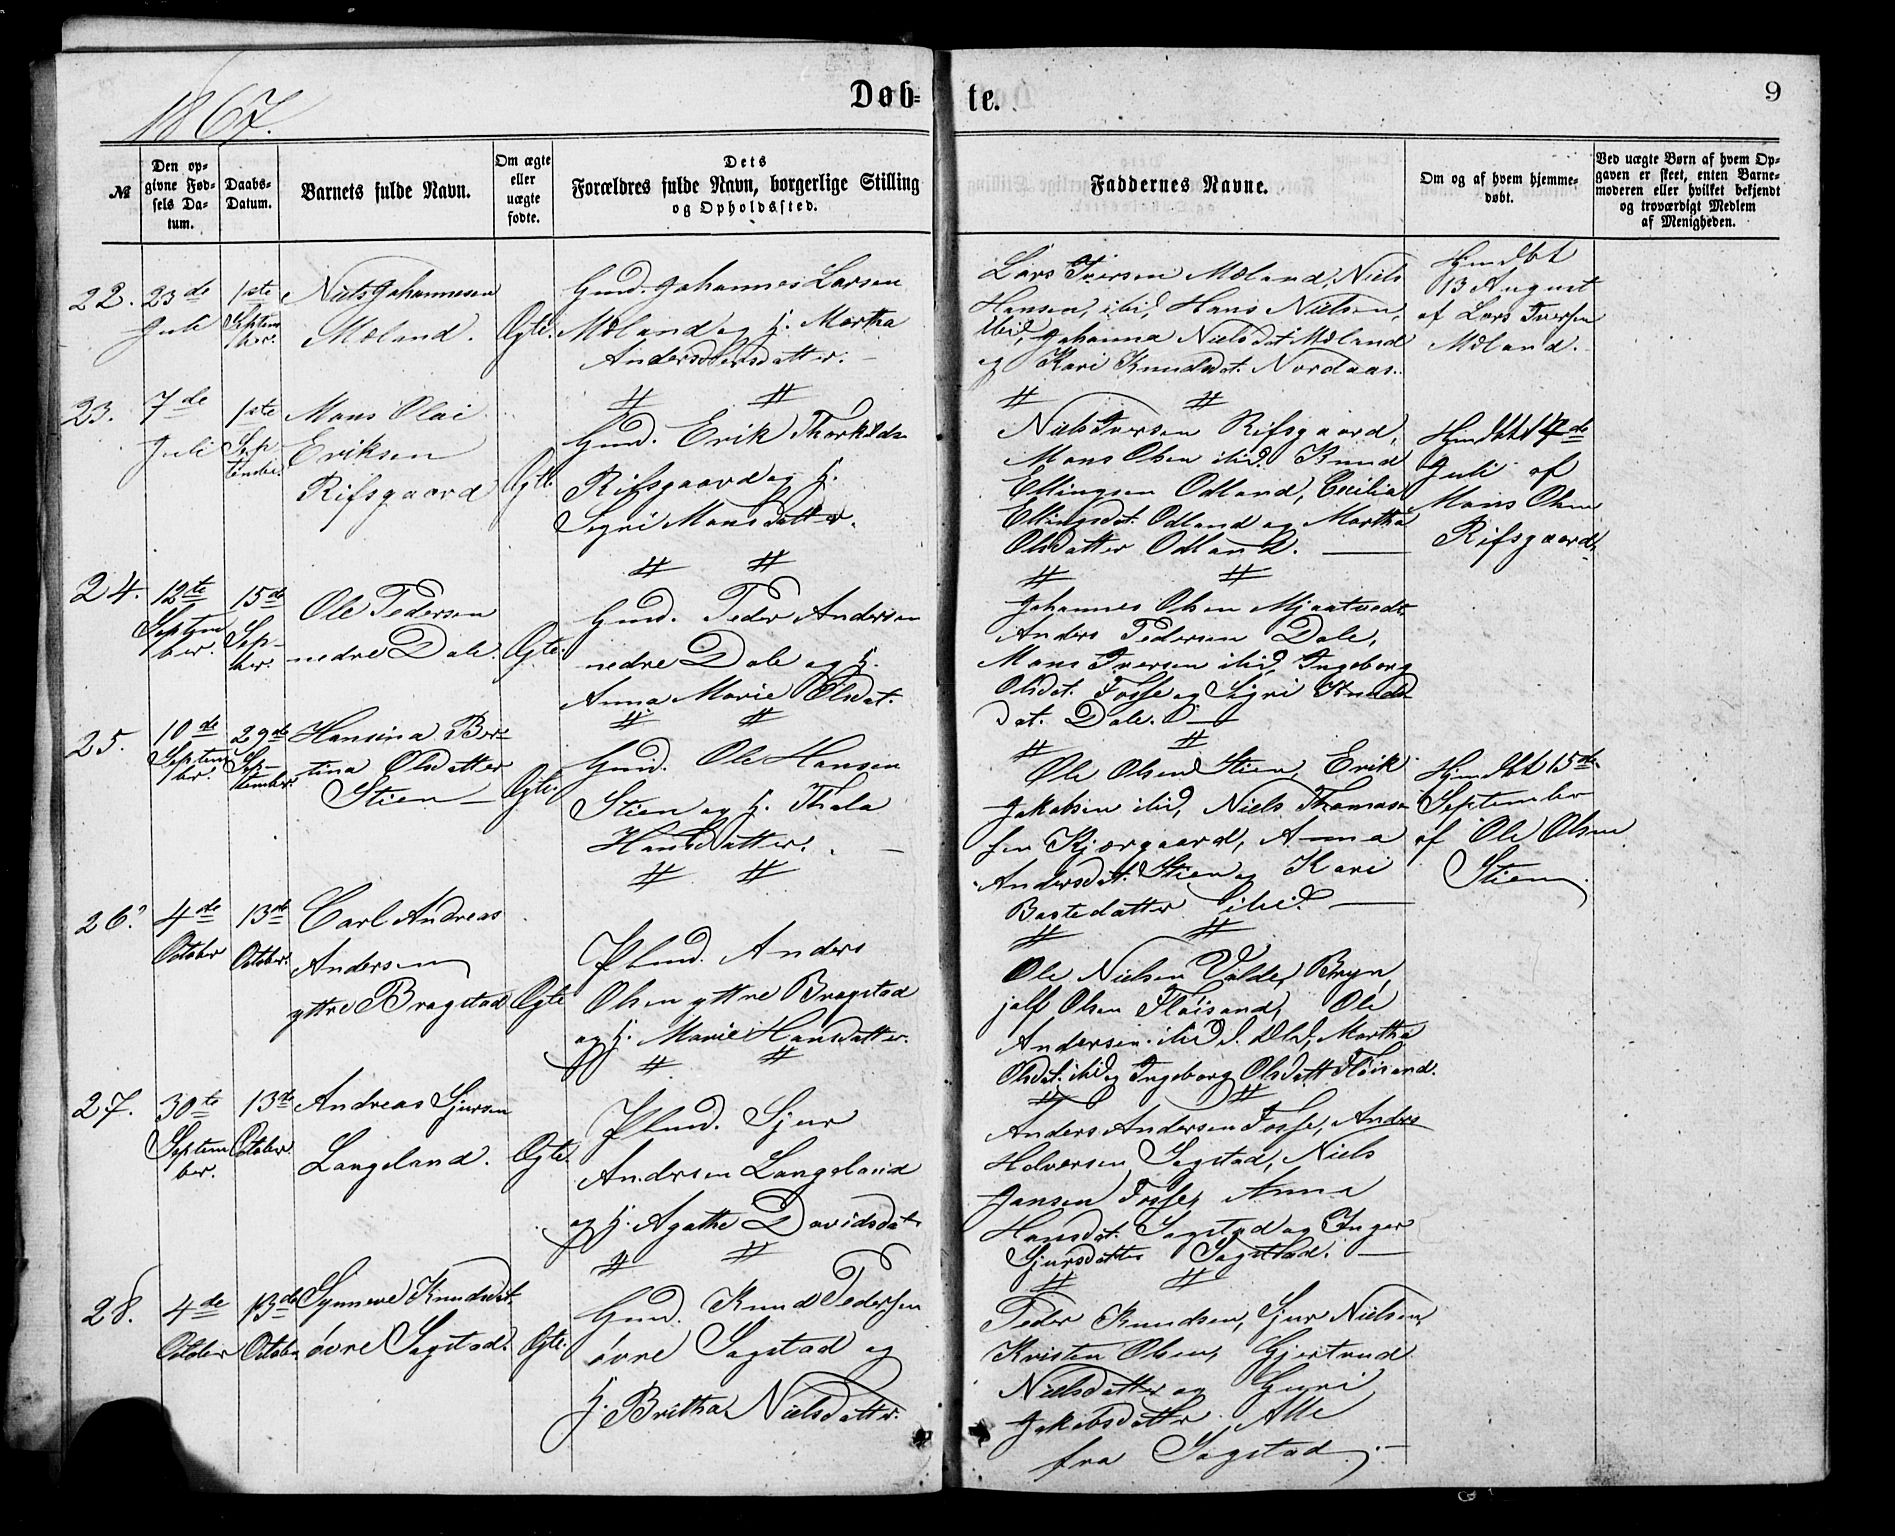 1867.
Døb-
te.
9
№
Den op-
givne Fød-
sels Da-
tum.
Daabs-
Datum.
Barnets fulde Navn.
Om ægte
eller
uægte
fødte.
Dets
Forældres fulde Navn, borgerlige Stilling
og Opholdssted.
Faddernes Navne.
Om og af hvem hjemme-
døbt.
Ved uægte Børn af hvem Op-
gaven er skeet, enten Barne-
moderen eller hvilket bekjendt
og troværdigt Medlem
af Menigheden.
22.
23de
Juli
1ste
Septem
ber.
Niels Johannesen
Mæland.
Ægte.
Gmd. Johannes Larsen
Mæland og h. Martha
Andersdatter.
Lars Iversen Mæland, Niels
Hansen, ibid, Hans Nielsen,
ibid, Johanna Nielsdat Mæland
og Kari Knudsdat. Nordaas.
Hjmdbt
13 August
af Lars Iversen
Mæland.
23.
7de
Juli
1ste
Sep
tember
Mons Olai
Eriksen
Rifsgaard
Ægte
Gmd. Erik Thorkilds
Rifsgaard og h.
Sigri Monsdatter.
Niels Iversen Rifsgaard,
Mons Olsen ibid. Knud
Ellingsen Odland, Cecilia
Ellingsdat. Odland og Martha
Olsdatter Odland.
Hjmdbt 14de
Juli af
Mons Olsen
Rifsgaard.
24.
12te
Septem
ber.
15de
Sep-
ber.
Ole Pedersen
nedre Dale.
Ægte.
Gmd. Peder Andersen
nedre Dale og h.
Anna Marie Olsdat.
Johannes Olsen Mjaatvedt
Anders Pedersen Dale,
Mons Iversen ibid, Ingeborg
Olsdat. Fosse og Sigri Knuds
dat. Dale.
25.
10de
Septem
ber.
29de
Sep-
tember.
Hansina Ber-
tina Olsdatter
Stien
Ægte.
Gmd. Ole Hansen
Stien og h. Thala
Hansdatter.
Ole Olsen Stien, Erik
Jakobsen ibid, Niels Thomas
sen Kjærgaard, Anna
Andersdat. Stien og Kari
Bastedatter ibid.
Hjmdbt 15de
September
af Ole Olsen
Stien.
26.
4de
October
13de
October.
Carl Andreas
Andersen
yttre Bragstad
Ægte
Plmd. Anders
Olsen yttre Bragstad
og h. Marie Hansdatter.
Ole Nielsen Valde, Bryn,
jolf Olsen Fløisand, Ole
Andersen ibid, Martha
Olsdat. ibid og Ingeborg Olsdatt Fløisand.
27.
30te
Septem
ber.
13de
October.
Andreas Sjursen
Langeland.
Ægte.
Plmd. Sjur
Andersen Langeland
og h. Agathe Davidsdat.
Anders Andersen Fosse, Anders
Halvorsen Sagstad, Niels
Jansen Fosse, Anna
Hansdat. Sagstad og Inger
Sjursdatter Sagstad.
28.
4de
October
13de
October
Synneve Knudsdat.
øvre Sagstad.
Ægte.
Gmd. Knud Pedersen
øvre Sagstad og
h. Britha Nielsdatter.
Peder Knudsen, Sjur Nielsen,
Kristen Olsen, Gjertrud
Nielsdatter og Guri
Jakobsdatter. Alle
fra Sagstad.